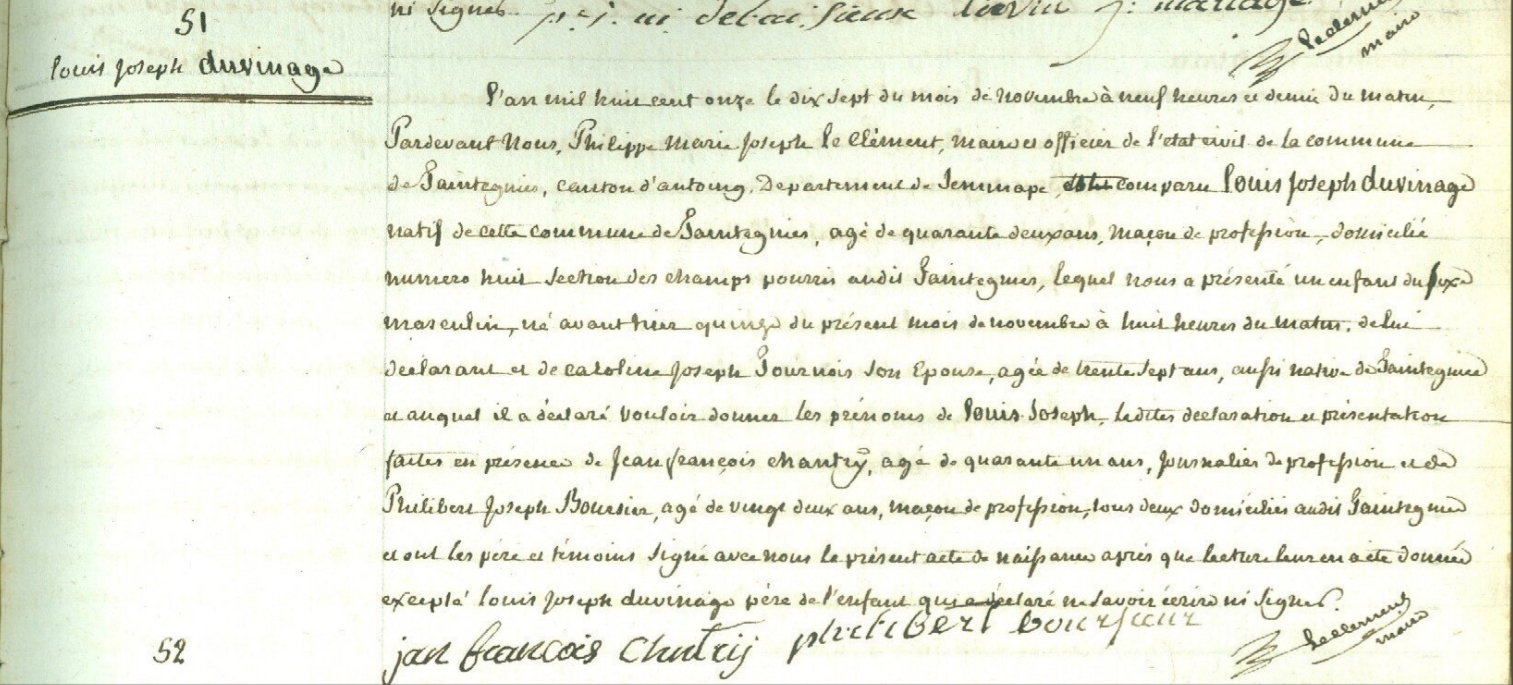 ni signer.
51
Louis Joseph duvinage
L'an mil huit cent onze le dix sept du mois de novembre à neuf heures et demie du matin,
Pardevant Nous, Philippe Marie Joseph Le Clément, maire et officier de l'etat civil de la commune
de Taintegnies, canton d'antoing, Departement de Jemmape, comparu Louis Joseph duvinage
natif de cette commune de Taintegnies, agé de quarante deux ans, maçon de profession, domicilié
numero huit section des champs pourris audit Taintegnies, lequel nous a présenté un enfant du sexe
masculin, né avant hier quinze du présent mois de novembre à huit heures du matin, de lui
déclarant et de caroline Joseph Tournois son Epouse, agée de trente sept ans, aussi native de Taintegnies
et auquel il a déclaré vouloir donner les prénoms de Louis Joseph, lesdites declaration et présentation
faites en présence de Jean françois chantry, agé de quarante un ans, Journalier de profession et de
Philibert Joseph Boursier, agé de vingt deux ans, maçon de profession, tous deux domiciliés audit Taintegnies
et ont les père et témoins signé avec nous le présent acte de naissance après que lecture leur en a été donnée
excepté Louis Joseph duvinage père de l'enfant qui a déclaré ne savoir écrire ni signer.
jan francois Chntrij philibert boursier
Leclement
maire
52